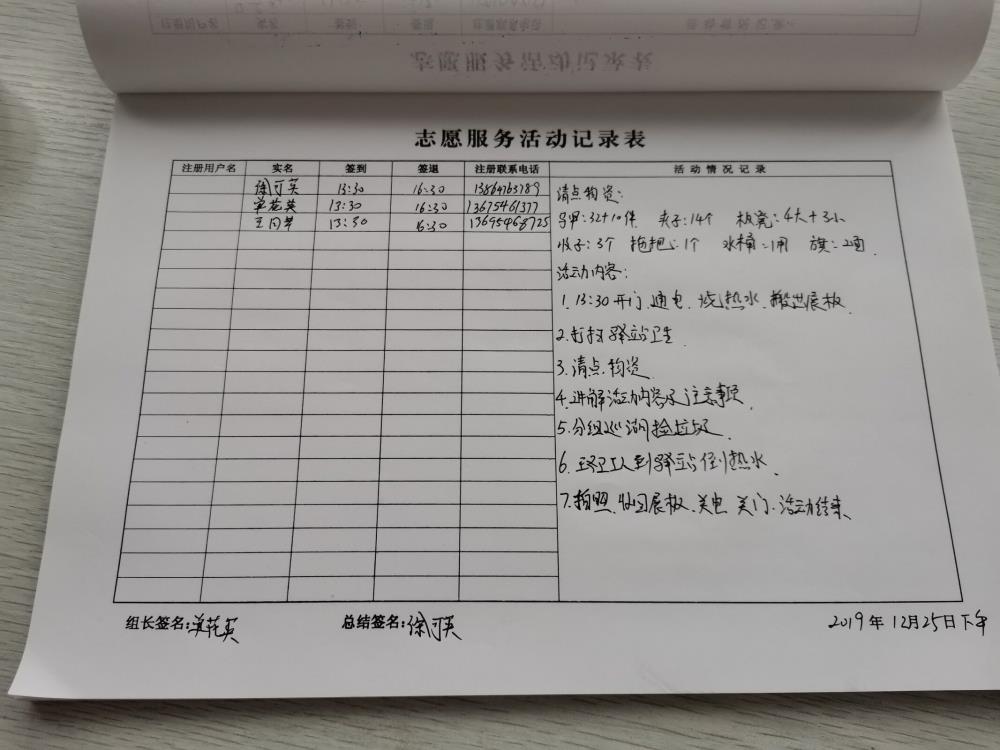 志愿服务活动记录表
志愿服务活动记录表
注册用户名 实名 签到 签退 注册联系电话 活动情况记录
徐可英 13:30 16:30 13864763789
单花英 13:30 16:30 13675461377
王同苹 13:30 16:30 13695468725
清点物资:
马甲:32+10件 夹子:14个 板凳:4大+3小
收子:3个 拖把:1个 水桶:1个 旗:2面
活动内容:
1. 13:30开门、通电、烧热水、搬出展板
2.打扫驿站卫生.
3.清点物资
4.讲解活动内容及注意事项
5.分组巡湖捡垃圾.
6.环卫工人到驿站倒热水.
7.拍照、收回展板、关电、关门、活动结束
组长签名:单花英 总结签名:徐可英 2019年12月25日下午